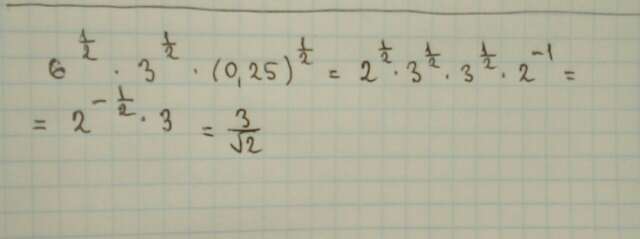 6^{\frac{1}{2}} \cdot 3^{\frac{1}{2}} \cdot (0,25)^{\frac{1}{2}} = 2^{\frac{1}{2}} \cdot 3^{\frac{1}{2}} \cdot 3^{\frac{1}{2}} \cdot 2^{-1} =
= 2^{-\frac{1}{2}} \cdot 3 = \frac{3}{\sqrt{2}}